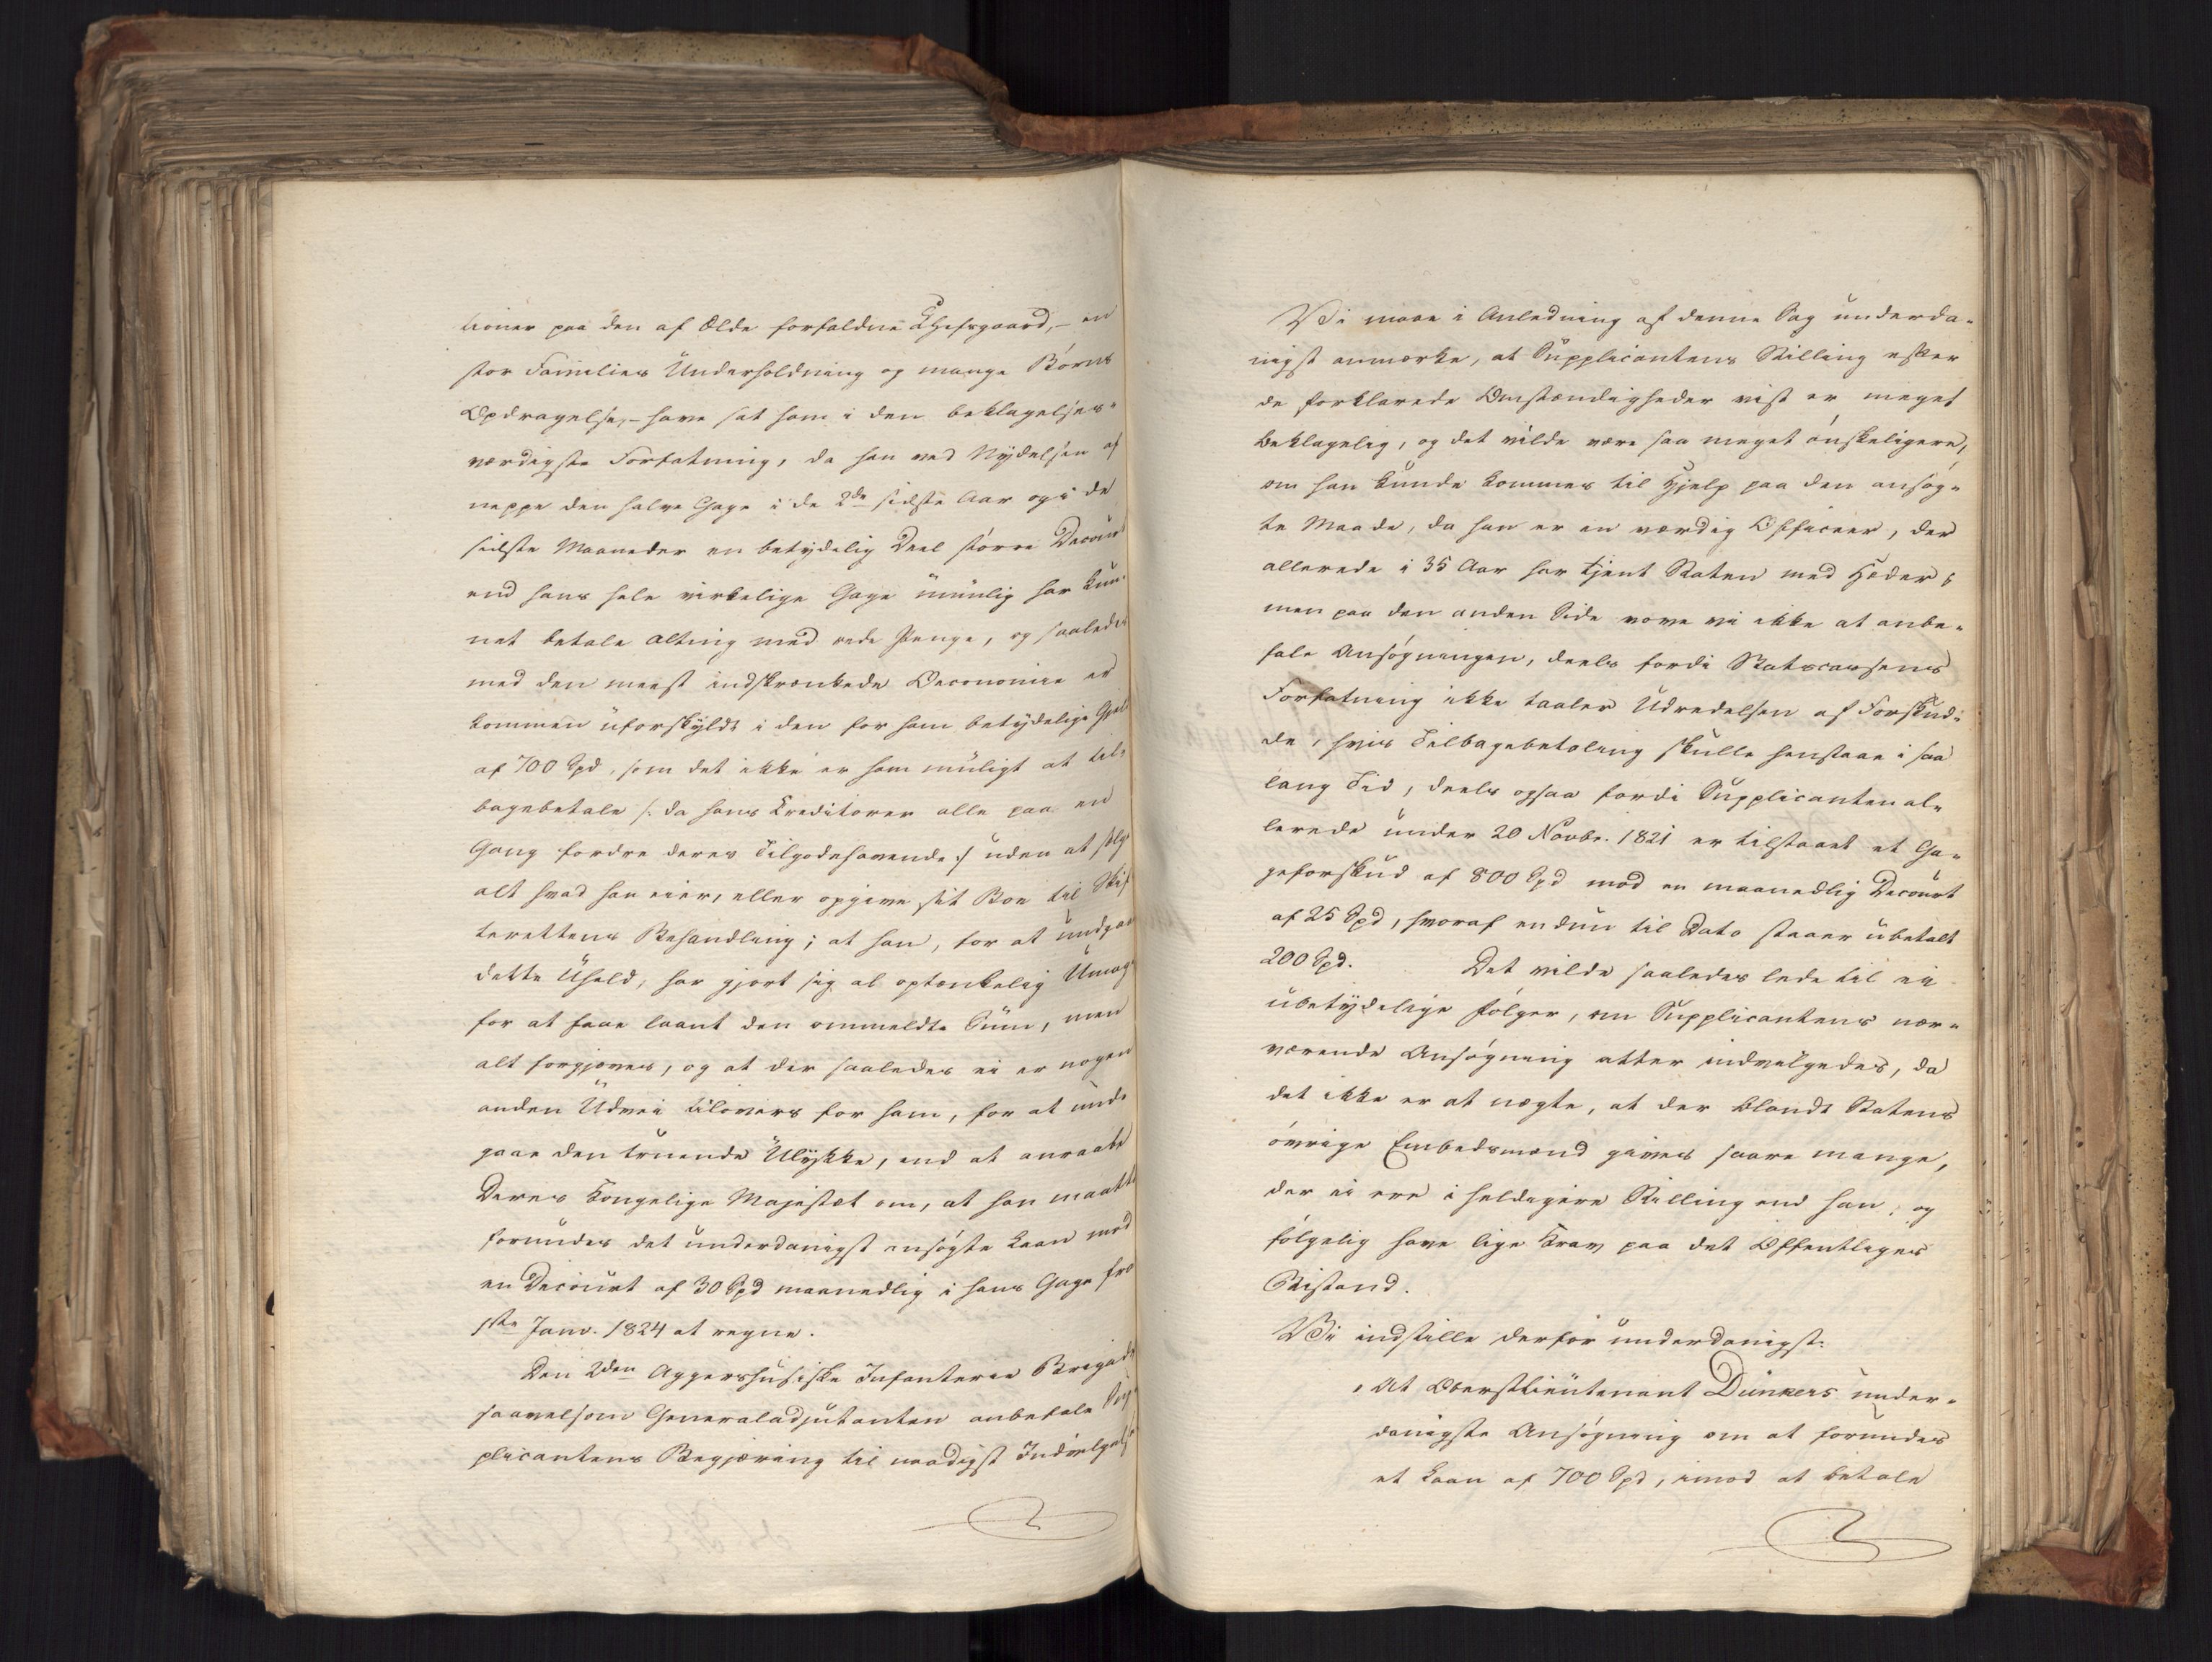 tioner paa den af Ælde forfaldne Chefsgaard, – en
stor Families Underholdning og mange Børns
Opdragelse, – have sat ham i den beklagelses-
værdigste Forfatning, da han ved Nydelsen af
neppe den halve Gage i de 2de sidste Aar og i de
sidste Maaneder en betydelig Deel større Decourt
end hans hele virkelige Gage umulig har kun-
net betale alting med rede Penge, og saaledes
med den meest indskrænkede Oeconomie er
kommen uforskyldt i den for ham betydelige Gjeld
af 700 Spd, som det ikke er ham muligt at til-
bagebetale /: da hans Creditorer alle paa en
Gang fordre deres Tilgodehavende :/ uden at sælge
alt hvad han eier, eller opgive sit Boe til Skif-
terettens Behandling; at han, for at undgaae
dette Uheld, har gjort sig al optænkelig Umage
for at faae laant den ommeldte Sum, men
alt forgjæves, og at der saaledes ei er nogen
anden Udvei tilovers for ham, for at und-
gaae den truende Ulykke, end at anraabe
Deres Kongelige Majestæt om, at han maatte
forundes det underdanigst ansøgte Laan mod
en Decourt af 30 Spd maanedlig i hans Gage fra
1ste Janv. 1824 at regne.
Den 2den Aggershusiske Infanterie Brigade
saavelsom Generaladjutanten anbefale Sup-
plicantens Begjæring til naadigst Indvilgelse
Vi maae i Anledning af denne Sag underda-
nigst anmærke, at Supplicantens Stilling efter
de forklarede Omstændigheder vist er meget
beklagelig, og det vilde være saa meget ønskeligere,
om han kunde kommes til Hjelp paa den ansøg-
te Maade, da han er en værdig Officeer, der
allerede i 35 Aar har tjent Staten med Hæder;
men paa den anden Side vove vi ikke at anbe-
fale Ansøgningen, deels fordi Statscassens
Forfatning ikke taaler Udredelsen af Forskud-
de, hvis Tilbagebetaling skulle henstaae i saa
lang Tid, deels ogsaa fordi Supplicanten al-
lerede under 20 Novbr. 1821 er tilstaaet et Ga-
geforskud af 800 Spd mod en maanedlig Decourt
af 25 Spd, hvoraf endnu til Dato staaer ubetalt
200 Spd. Det vilde saaledes lede til ei
ubetydelige Følger, om Supplicantens nær-
værende Ansøgning atter indvilgedes, da
det ikke er at negte, at der blandt Statens
øvrige Embedsmænd gives saare mange,
der ei ere i heldigere Stilling end han, og
følgelig have lige Krav paa det Offentliges
Bistand.
Vi indstille derfor underdanigst:
„At Oberstlieutenant Dunkers under-
danigste Ansøgning om at forundes
et Laan af 700 Spd, imod at betale